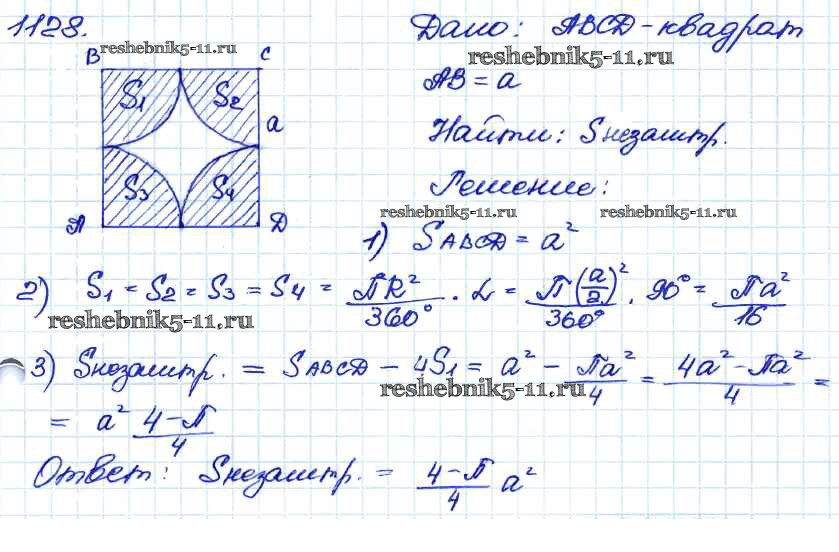 1128.
reshebnik5-11.ru
Дано: ABCD - квадрат
reshebnik5-11.ru
B C
S1 S2
a
S3 S4
A D
AB = a
Найти: Sнезаштр.
Решение:
reshebnik5-11.ru reshebnik5-11.ru
1) SABCD = a²
2) S1 = S2 = S3 = S4 = ПR²/360° · α = П(a/2)²/360° · 90° = Пa²/16
reshebnik5-11.ru
3) Sнезаштр. = SABCD - 4S1 = a² - Пa²/4 = 4a² - Пa²/4 =
reshebnik5-11.ru
= a² 4-П/4
Ответ: Sнезаштр. = 4-П/4 a²